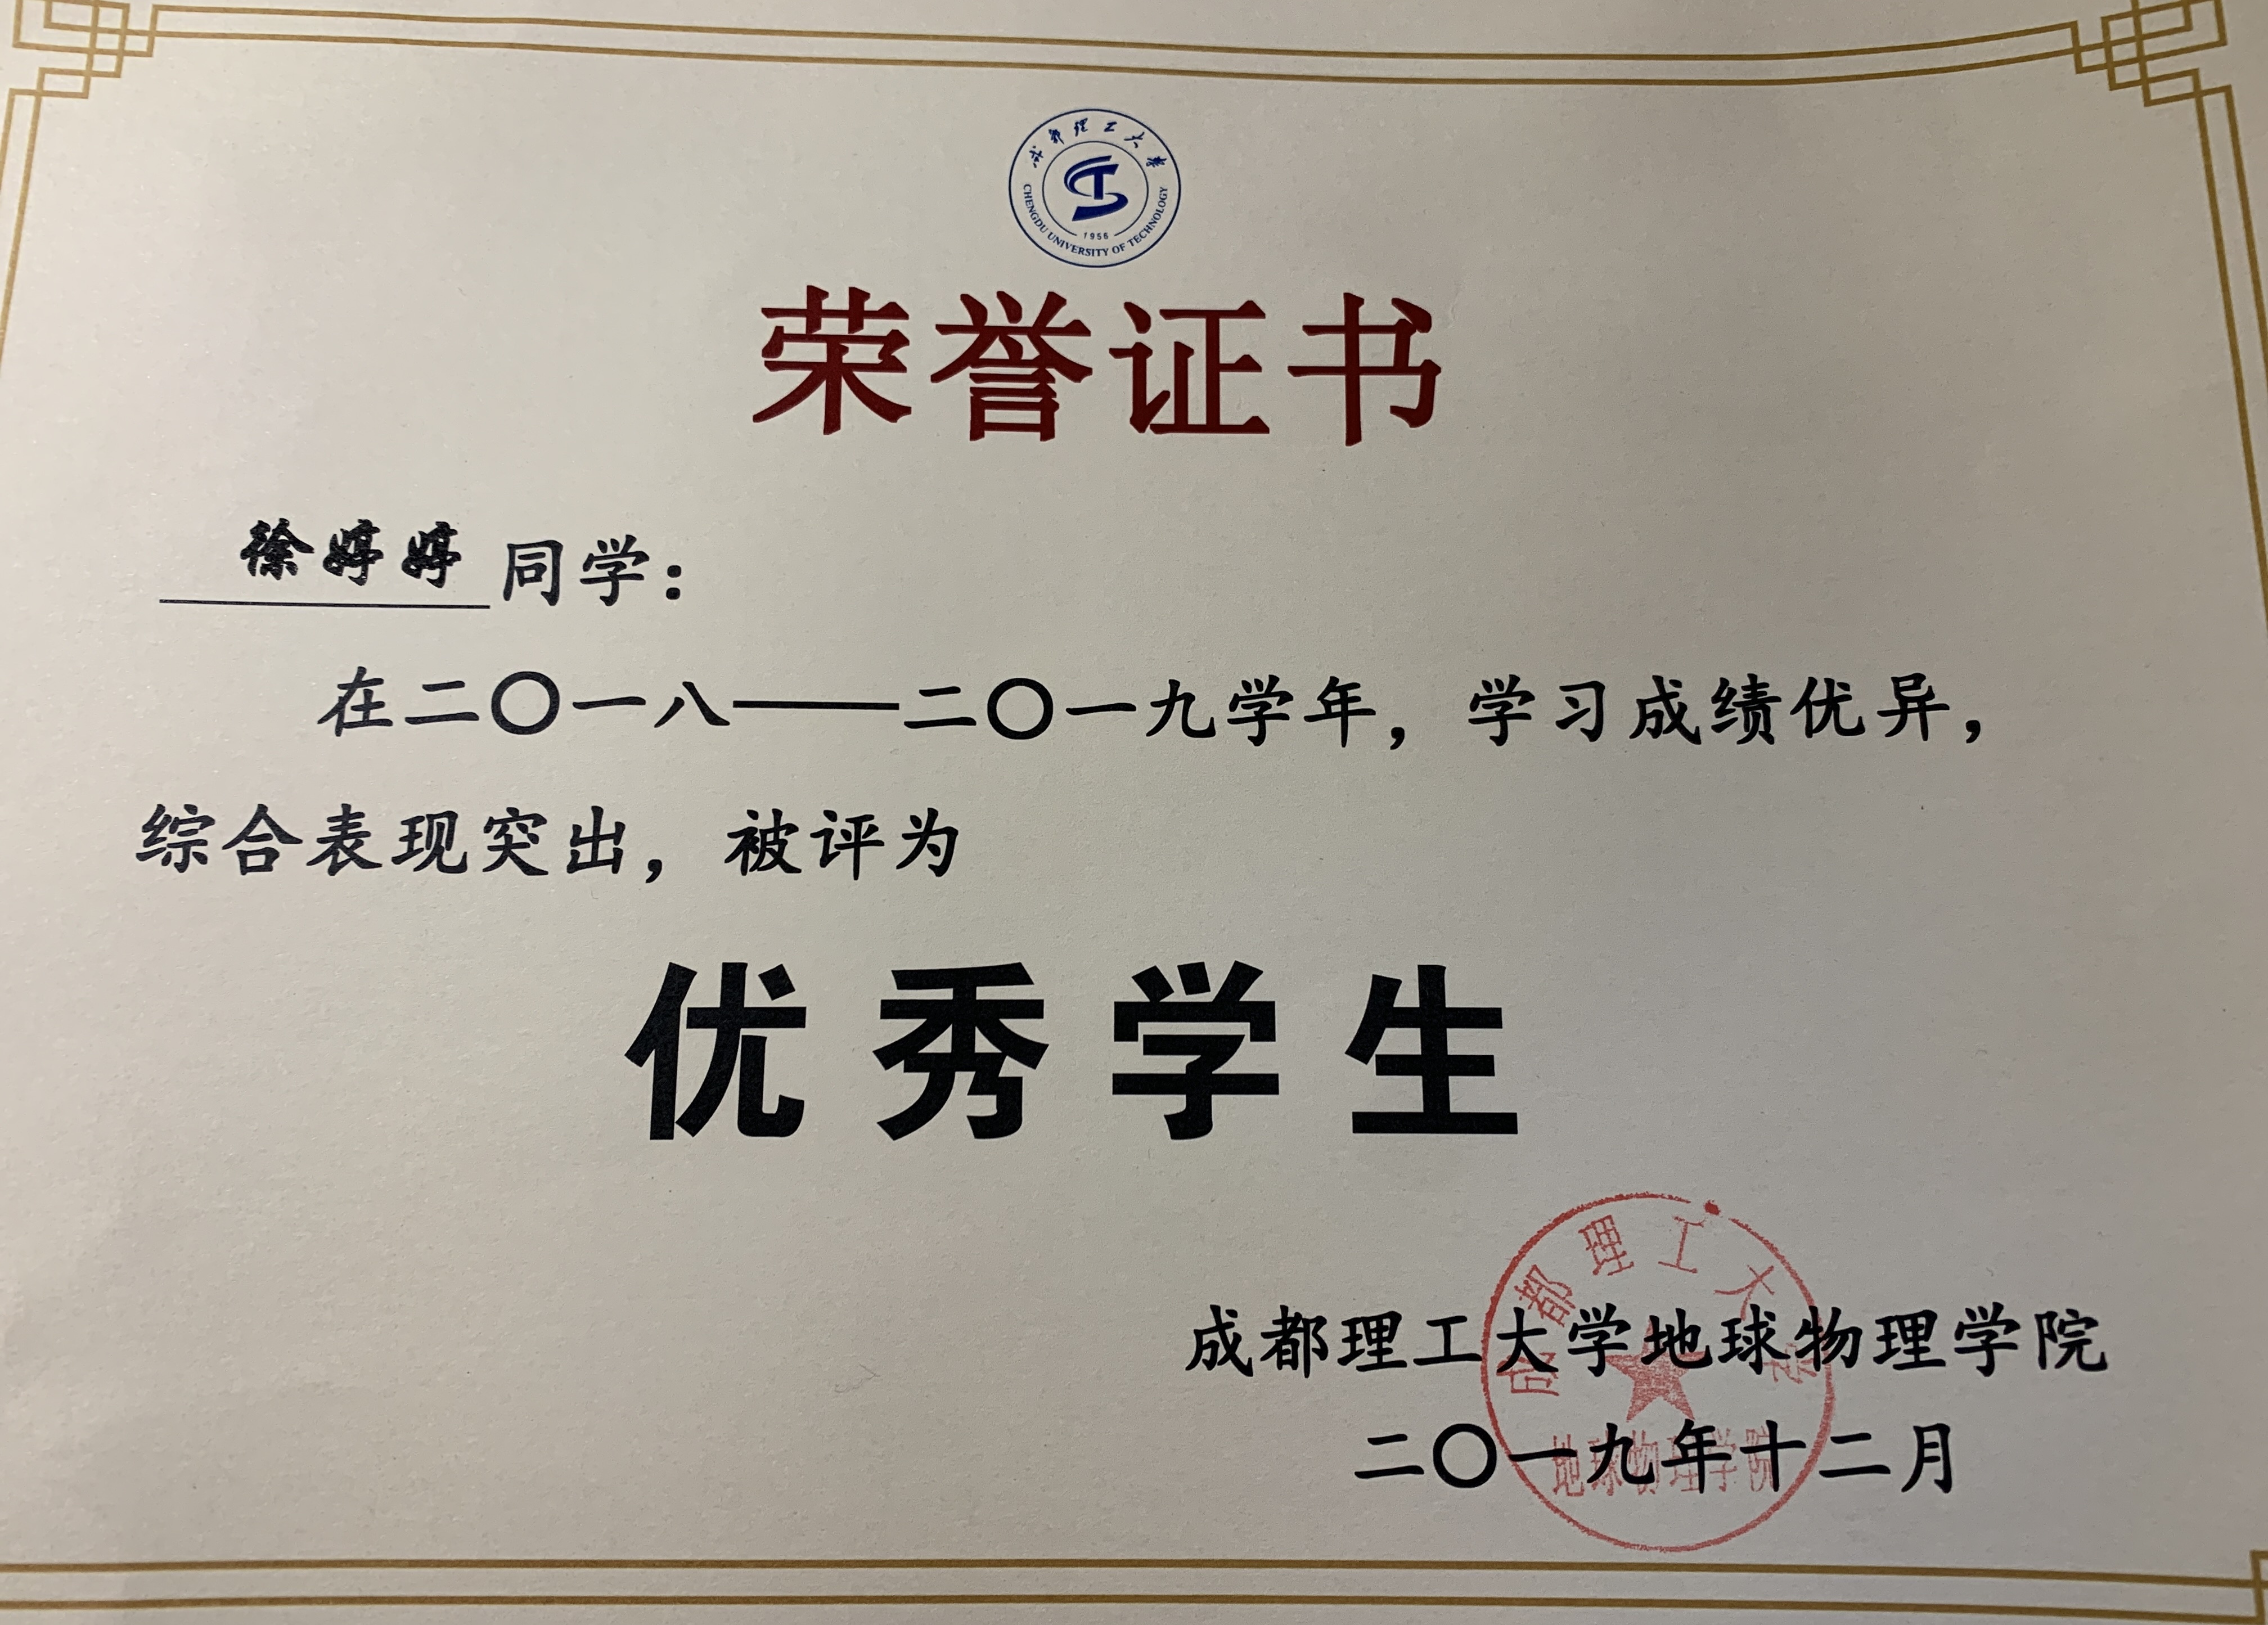 成都理工大学
CHENGDU UNIVERSITY OF TECHNOLOGY
1956
荣誉证书
徐婷婷同学：
在二〇一八——二〇一九学年，学习成绩优异，
综合表现突出，被评为
优秀学生
成都理工大学地球物理学院
二〇一九年十二月
成都理工大学
地球物理学院